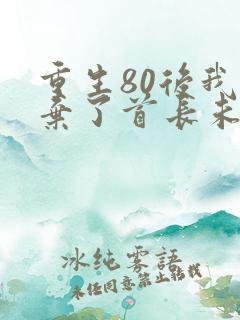 重生80後我
棄了首長未
冰纯雾語
未经同意禁止转载